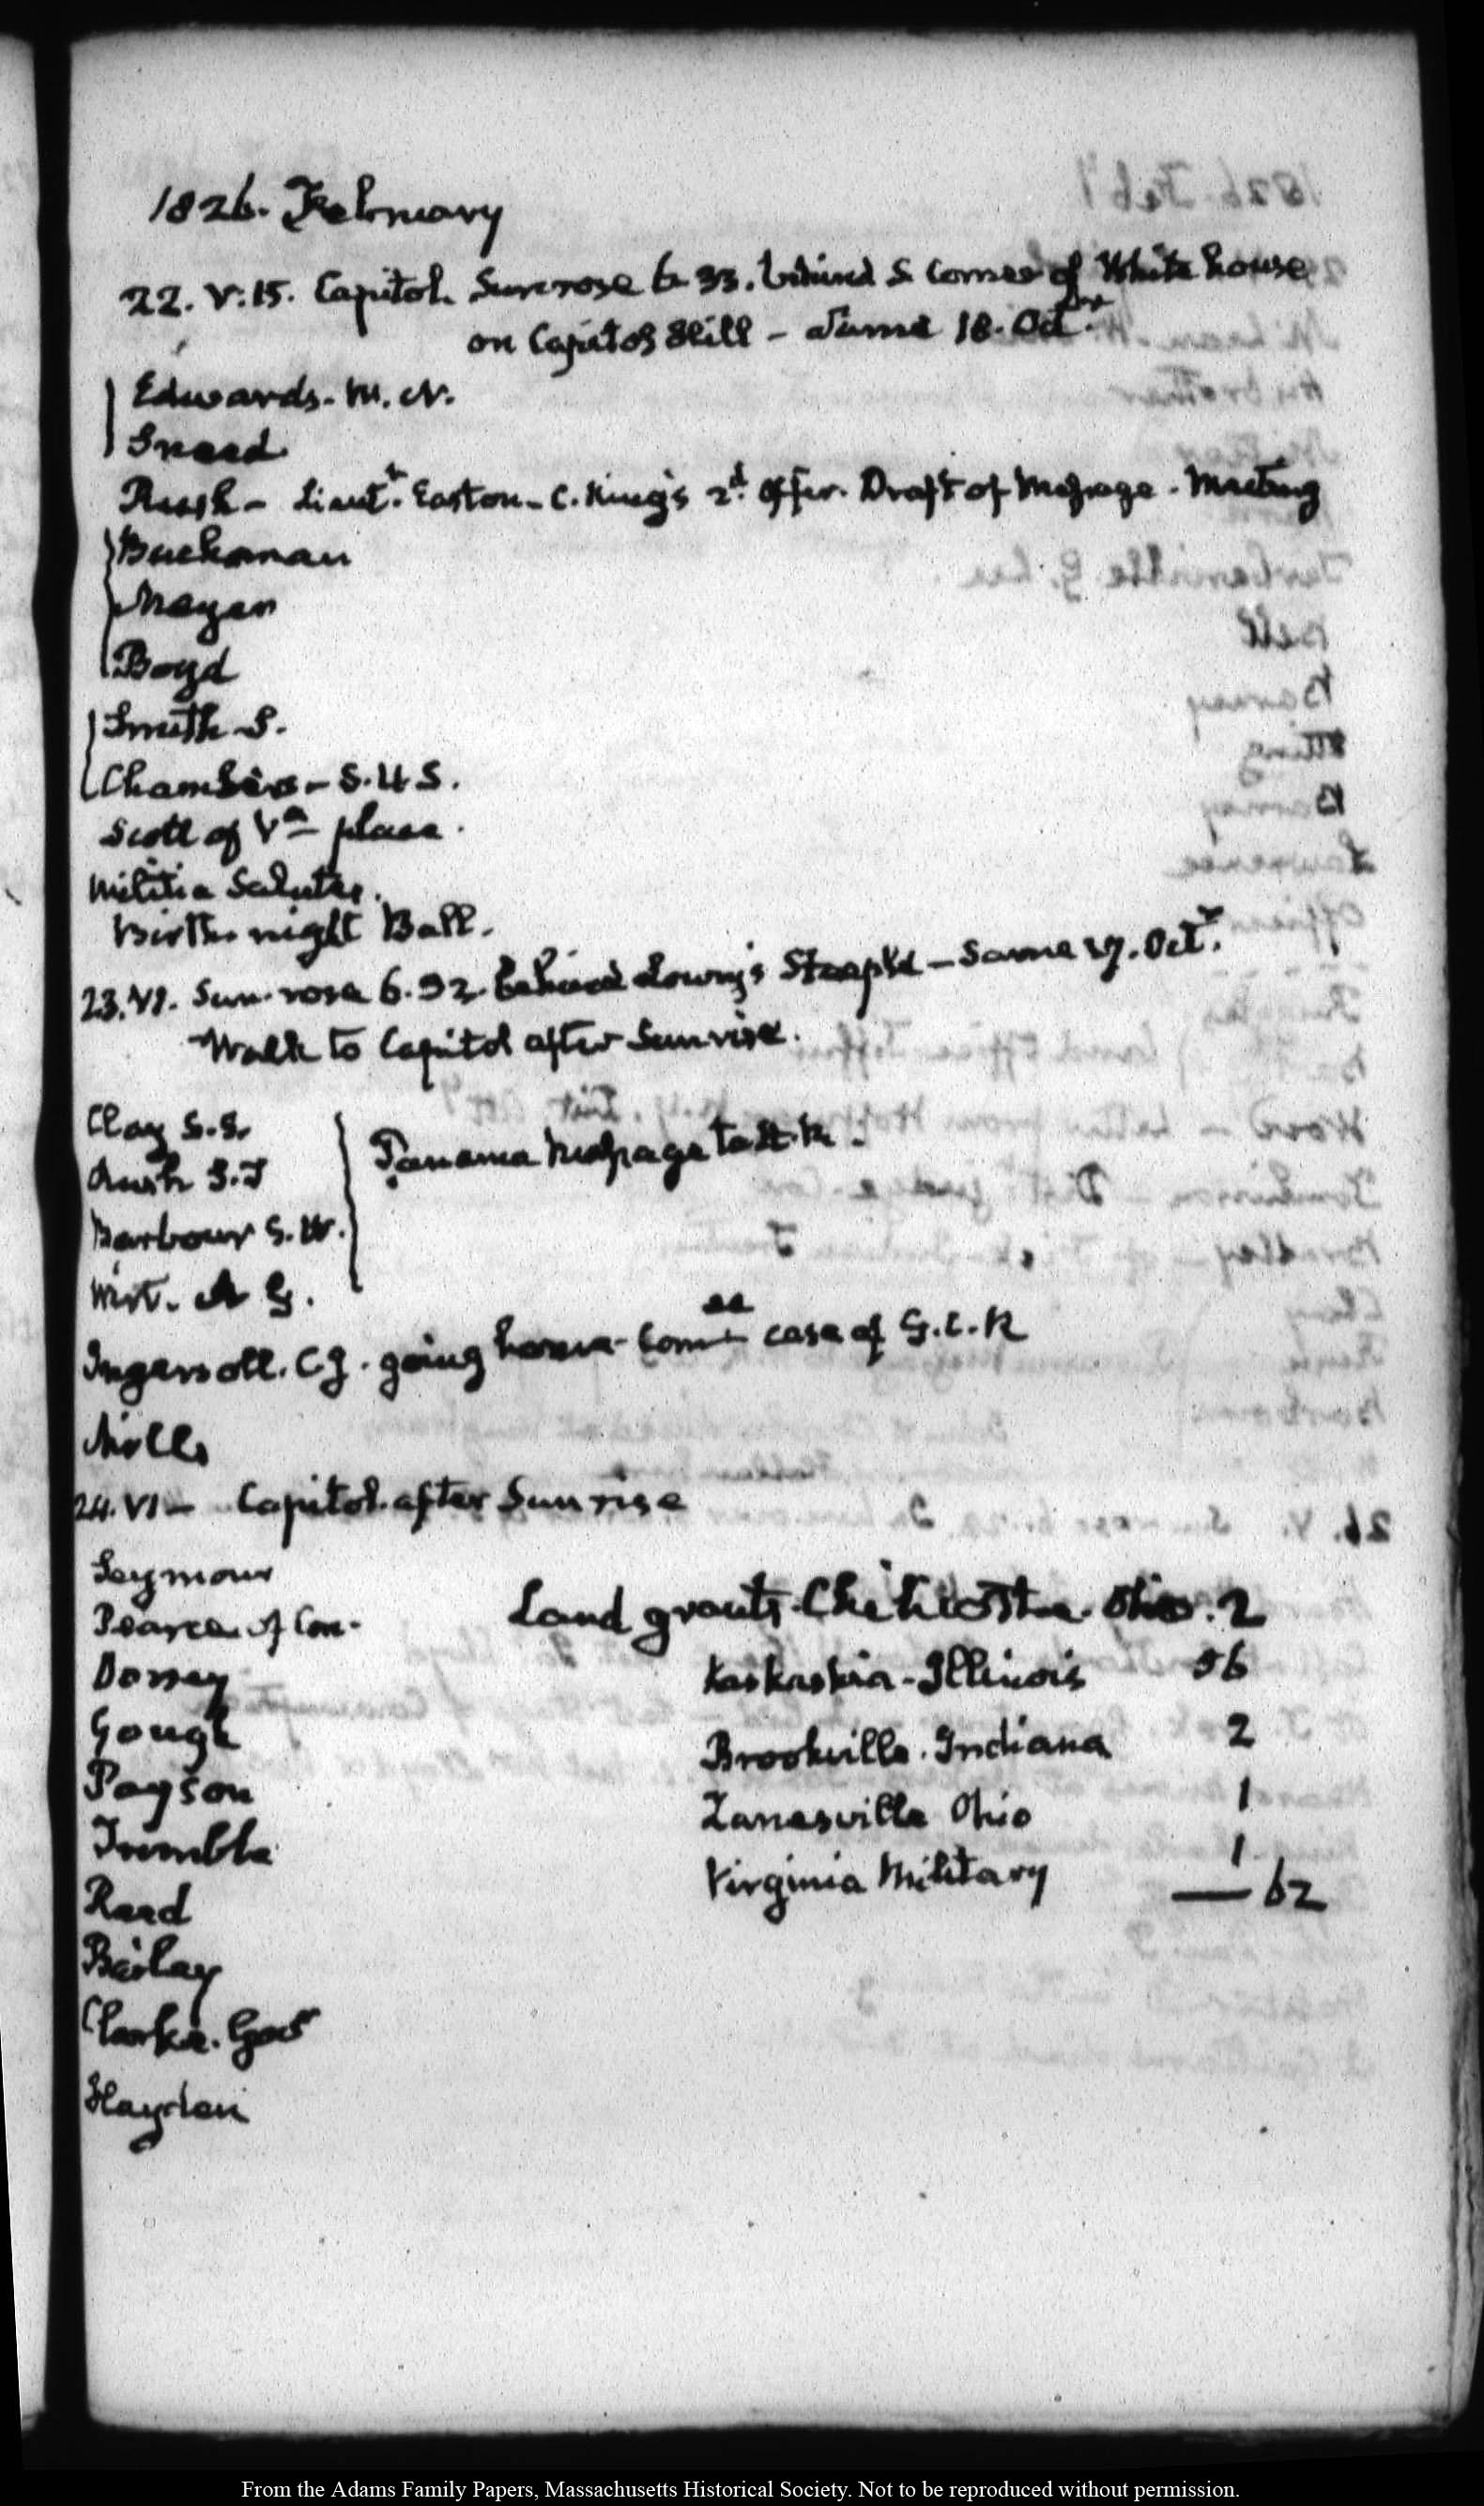 1826. February
22. V:15. Capitol. Sun rose 6.33. behind S corner of White house
on Capitol Hill - Same 18. Octr.
Edwards. M. N.
Sneed
Rush - Lieutt. Easton - C. King's 2d. offer. Draft of Message. Meeting
Buchanan
Boyd
Smith - S.
Chambers - S. U S.
Scott of Va place.
Militia Salutes.
Birth night Ball.
23. VI. Sun rose 6.32. behind Lowry's Steeple - Same 17. Octr.
Walk to Capitol after Sunrise.
Clay S. S.
Rush S. T
Panama Message talk.
Barbour S. W.
Wirt. A G.
Ingersoll. C J. going home - Comee case of G. C. R
24. VI - Capitol after Sun rise
Seymour
Land grants. Chillicothe. Ohio. 2
Pearce of Con.
Kaskaskia - Illinois 56
Dorsey
Gough
Brookville. Indiana 2
Payson
Zanesville Ohio 1
Trimble
Virginia Military 1
Reed
— 62
Bailey
Clarke. Gov
Hayden
From the Adams Family Papers, Massachusetts Historical Society. Not to be reproduced without permission.